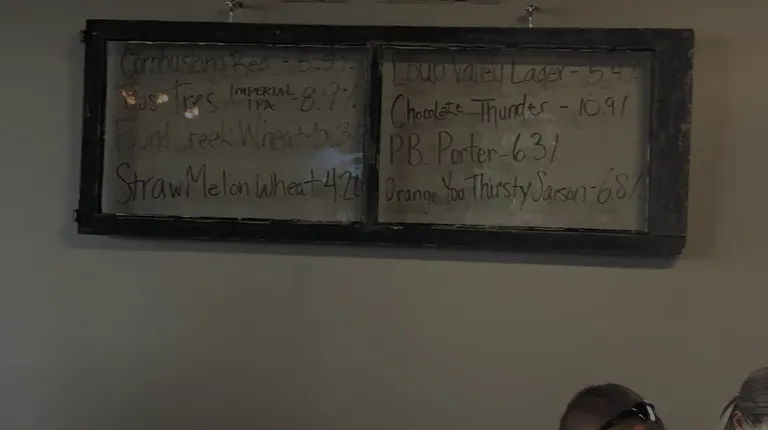 Cornhuskin Red - 5.5%
Tres IMPERIAL IPA - 8.9%
Found Creek Wheat - 5.3%
StrawMelon Wheat - 4.2%
Loup Valley Lager - 5.4%
Chocolate Thunder - 10.9%
P.B. Porter - 6.3%
Orange You Thirsty Saison - 6.8%